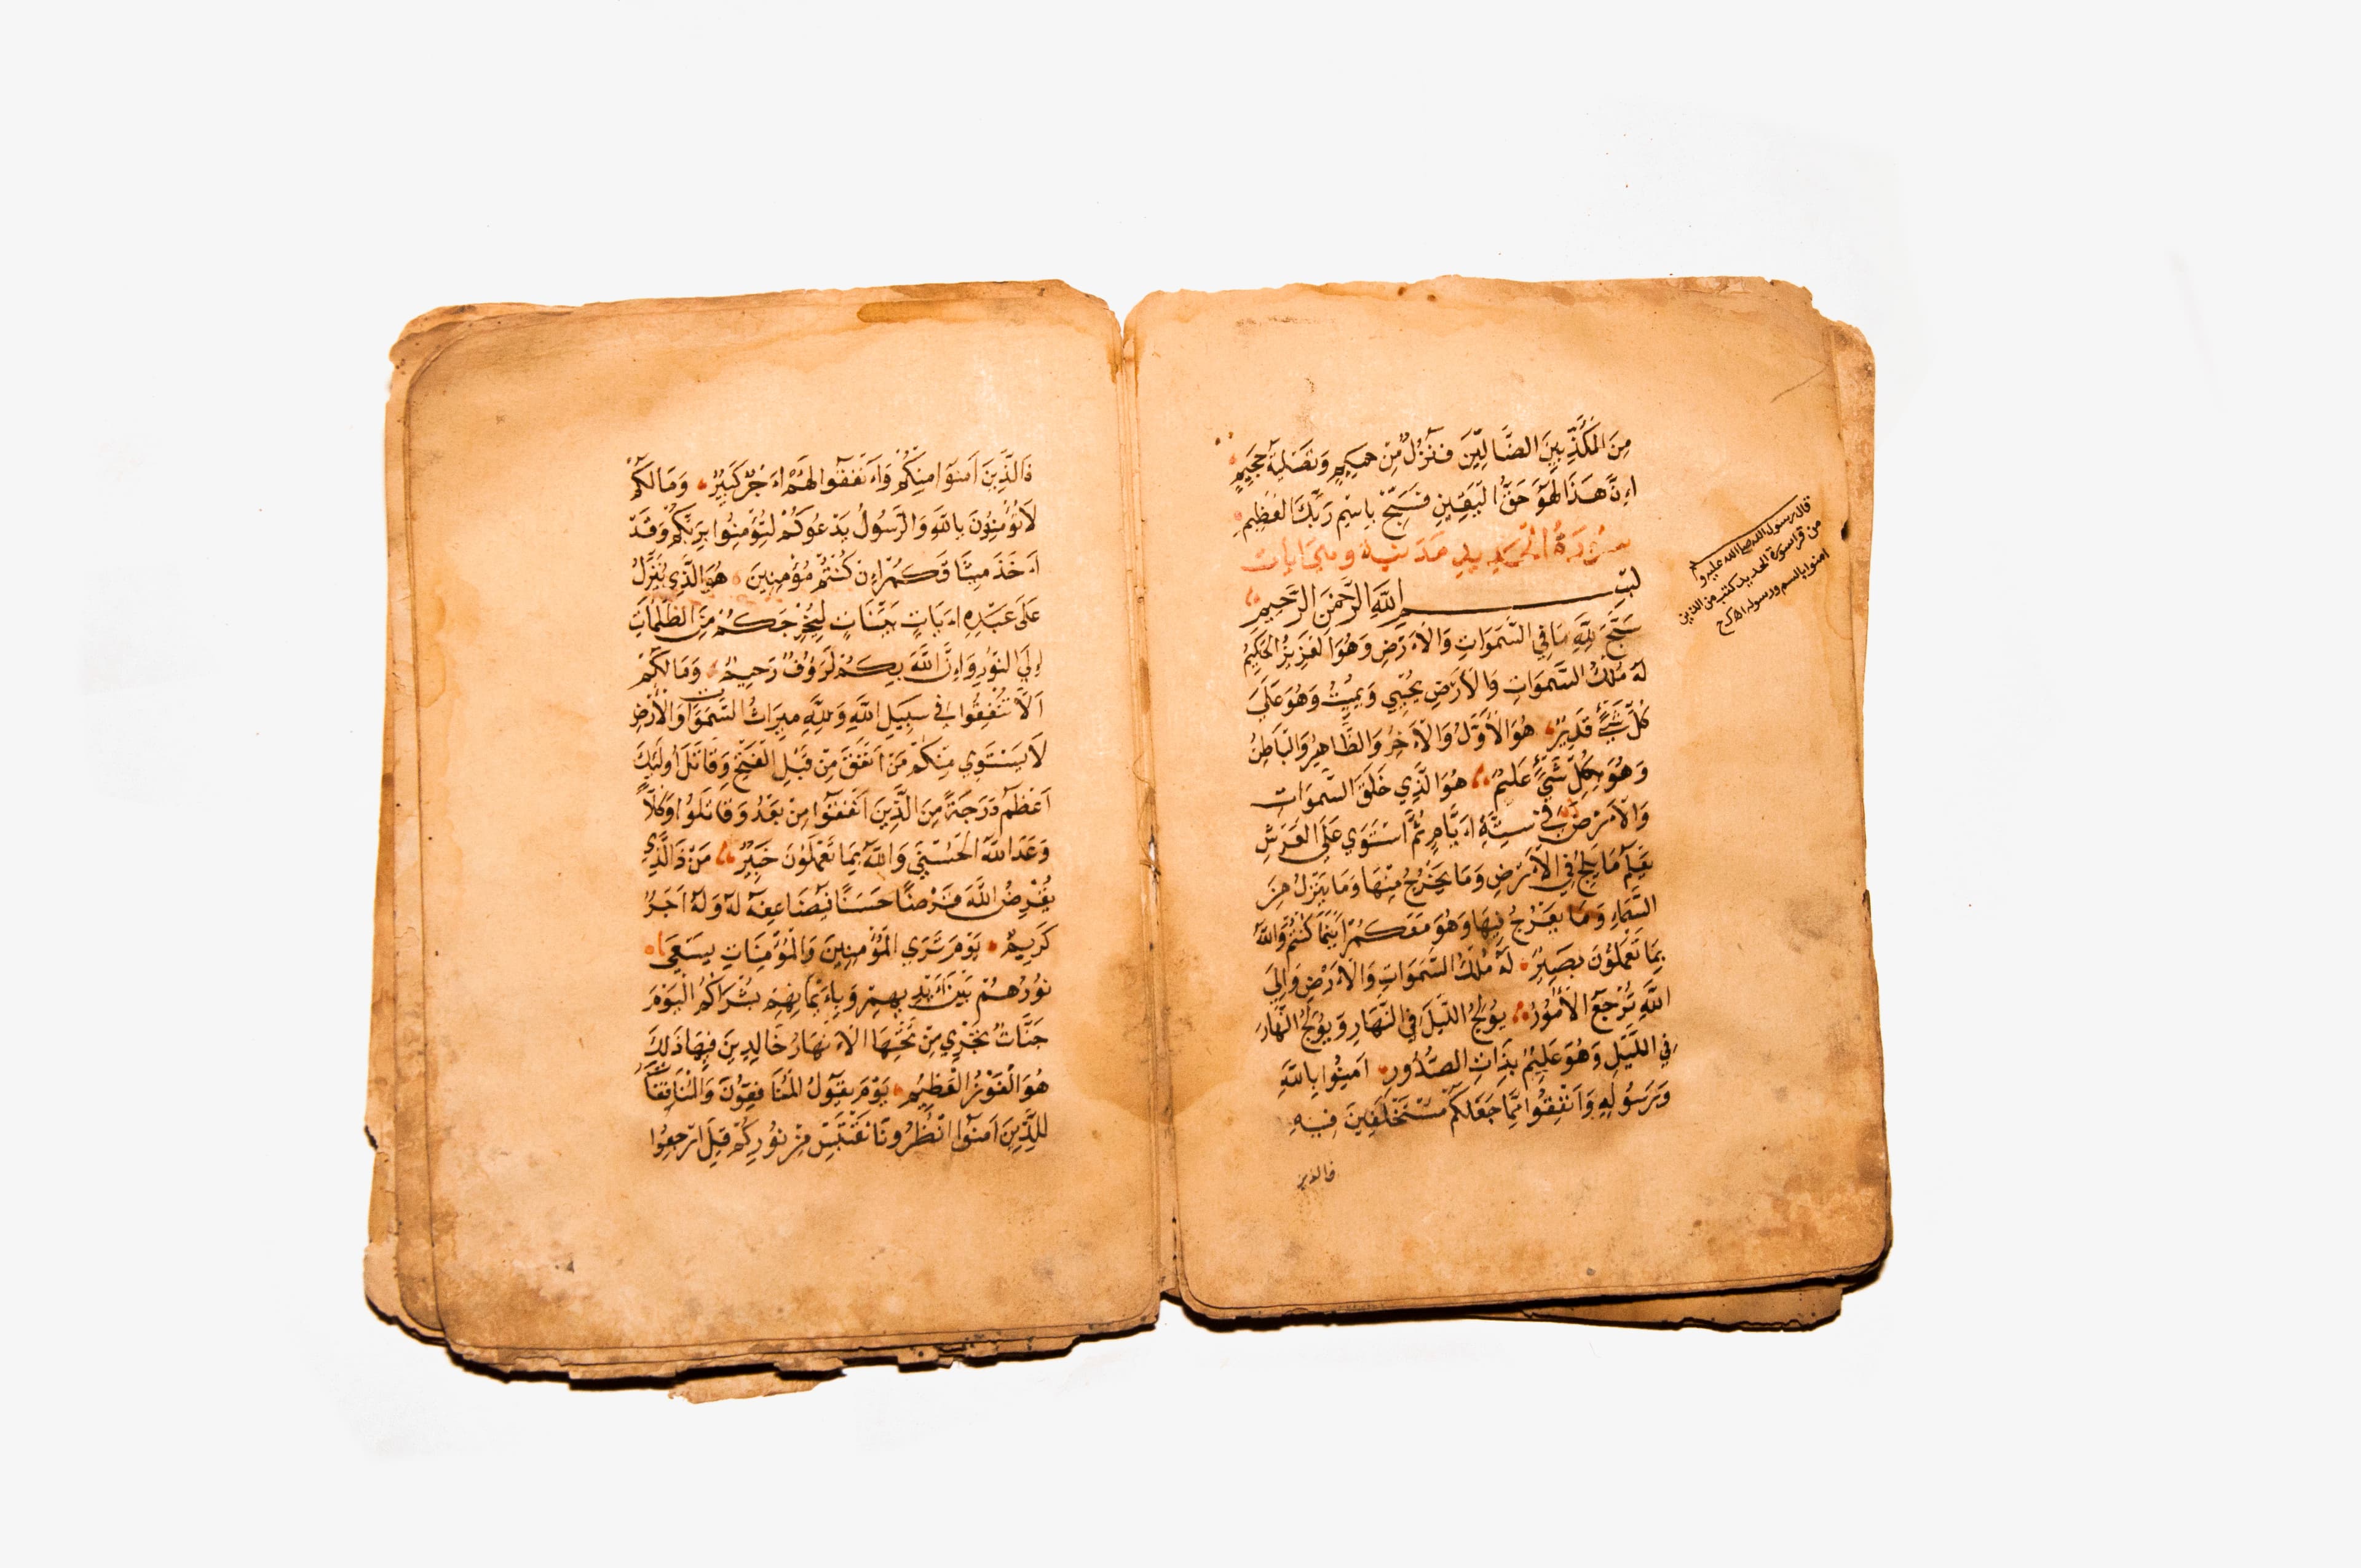 مِنَ الْمُكَذِّبِينَ الضَّالِّينَ فَنُزُلٌ مِنْ حَمِيمٍ وَتَصْلِيَةُ جَحِيمٍ
اِنَّ هَذَا لَهُوَ حَقُّ الْيَقِينِ فَسَبِّحْ بِاسْمِ رَبِّكَ الْعَظِيمِ
سُورَةُ الْحَدِيدِ مَدَنِيَة وهي ايات
قال رسول الله صلى الله عليه و
من قرا سورة الحديد كتب من الذين
امنوا بالله ورسوله
بِسْمِ اللَّهِ الرَّحْمَنِ الرَّحِيمِ
سَبَّحَ لِلَّهِ مَا فِي السَّمَوَاتِ وَالْاَرْضِ وَهُوَ الْعَزِيزُ الْحَكِيمُ
لَهُ مُلْكُ السَّمَوَاتِ وَالْاَرْضِ يُحْيِي وَيُمِيتُ وَهُوَ عَلَى
كُلِّ شَيْءٍ قَدِيرٌ هُوَ الْاَوَّلُ وَالْاَخِرُ وَالظَّاهِرُ وَالْبَاطِنُ
وَهُوَ بِكُلِّ شَيْءٍ عَلِيمٌ هُوَ الَّذِي خَلَقَ السَّمَوَات
وَالْاَرْضَ فِي سِتَّةِ اَيَّامٍ ثُمَّ اسْتَوَي عَلَي الْعَرْشِ
يَعْلَمُ مَا يَلِجُ فِي الْاَرْضِ وَمَا يَخْرُجُ مِنْهَا وَمَا يَنْزِلُ مِنَ
السَّمَاءِ وَمَا يَعْرُجُ فِيهَا وَهُوَ مَعَكُمْ اَيْنَمَا كُنْتُمْ وَاللَّهُ
بِمَا تَعْمَلُونَ بَصِيرٌ لَهُ مُلْكُ السَّمَوَاتِ وَالْاَرْضِ وَاِلَي
اللَّهِ تُرْجَعُ الْاُمُورُ يُولِجُ اللَّيْلَ فِي النَّهَارِ وَيُولِجُ النَّهَارَ
فِي اللَّيْلِ وَهُوَ عَلِيمٌ بِذَاتِ الصُّدُورِ اَمِنُوا بِاللَّهِ
وَرَسُولِهِ وَاَنْفِقُوا مِمَّا جَعَلَكُمْ مُسْتَخْلَفِينَ فِيهِ
فالذين
فَالَّذِينَ اَمَنُوا مِنْكُمْ وَاَنْفَقُوا لَهُمْ اَجْرٌ كَبِيرٌ وَمَا لَكُمْ
لَا تُؤْمِنُونَ بِاللَّهِ وَالرَّسُولُ يَدْعُوكُمْ لِتُؤْمِنُوا بِرَبِّكُمْ وَقَدْ
اَخَذَ مِيثَاقَكُمْ اِنْ كُنْتُمْ مُؤْمِنِينَ هُوَ الَّذِي يُنَزِّلُ
عَلَى عَبْدِهِ اَيَاتٍ بَيِّنَاتٍ لِيُخْرِجَكُمْ مِنَ الظُّلُمَاتِ
اِلَي النُّورِ وَاِنَّ اللَّهَ بِكُمْ لَرَؤُفٌ رَحِيمٌ وَمَا لَكُمْ
اَلَّا تُنْفِقُوا فِي سَبِيلِ اللَّهِ وَلِلَّهِ مِيرَاثُ السَّمَوَاتِ وَالْاَرْضِ
لَا يَسْتَوِي مِنْكُمْ مَنْ اَنْفَقَ مِنْ قَبْلِ الْفَتْحِ وَقَاتَلَ اُولَئِكَ
اَعْظَمُ دَرَجَةً مِنَ الَّذِينَ اَنْفَقُوا مِنْ بَعْدُ وَقَاتَلُوا وَكُلًّا
وَعَدَ اللَّهُ الْحُسْنَي وَاللَّهُ بِمَا تَعْمَلُونَ خَبِيرٌ مَنْ ذَا الَّذِي
يُقْرِضُ اللَّهَ قَرْضًا حَسَنًا فَيُضَاعِفَهُ لَهُ وَلَهُ اَجْرٌ
كَرِيمٌ يَوْمَ تَرَي الْمُؤْمِنِينَ وَالْمُؤْمِنَاتِ يَسْعَى
نُورُهُمْ بَيْنَ اَيْدِيهِمْ وَبِاَيْمَانِهِمْ بُشْرَاكُمُ الْيَوْمَ
جَنَّاتٌ تَجْرِي مِنْ تَحْتِهَا الْاَنْهَارُ خَالِدِينَ فِيهَا ذَلِكَ
هُوَ الْفَوْزُ الْعَظِيمُ يَوْمَ يَقُولُ الْمُنَافِقُونَ وَالْمُنَافِقَاتُ
لِلَّذِينَ اَمَنُوا انْظُرُونَا نَقْتَبِسْ مِنْ نُورِكُمْ قِيلَ ارْجِعُوا